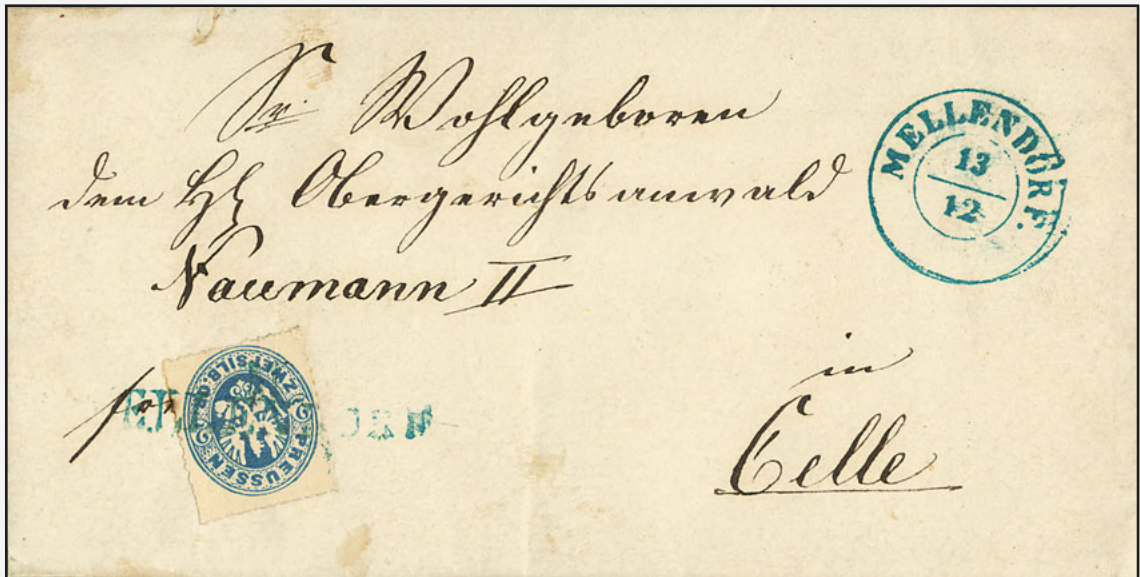 Sr. Wohlgeboren
dem H Obergerichtsanwald
Naumann II
in
Celle
MELLENDORF.
13
12
PREUSSEN
ZWEI SILB.GR.